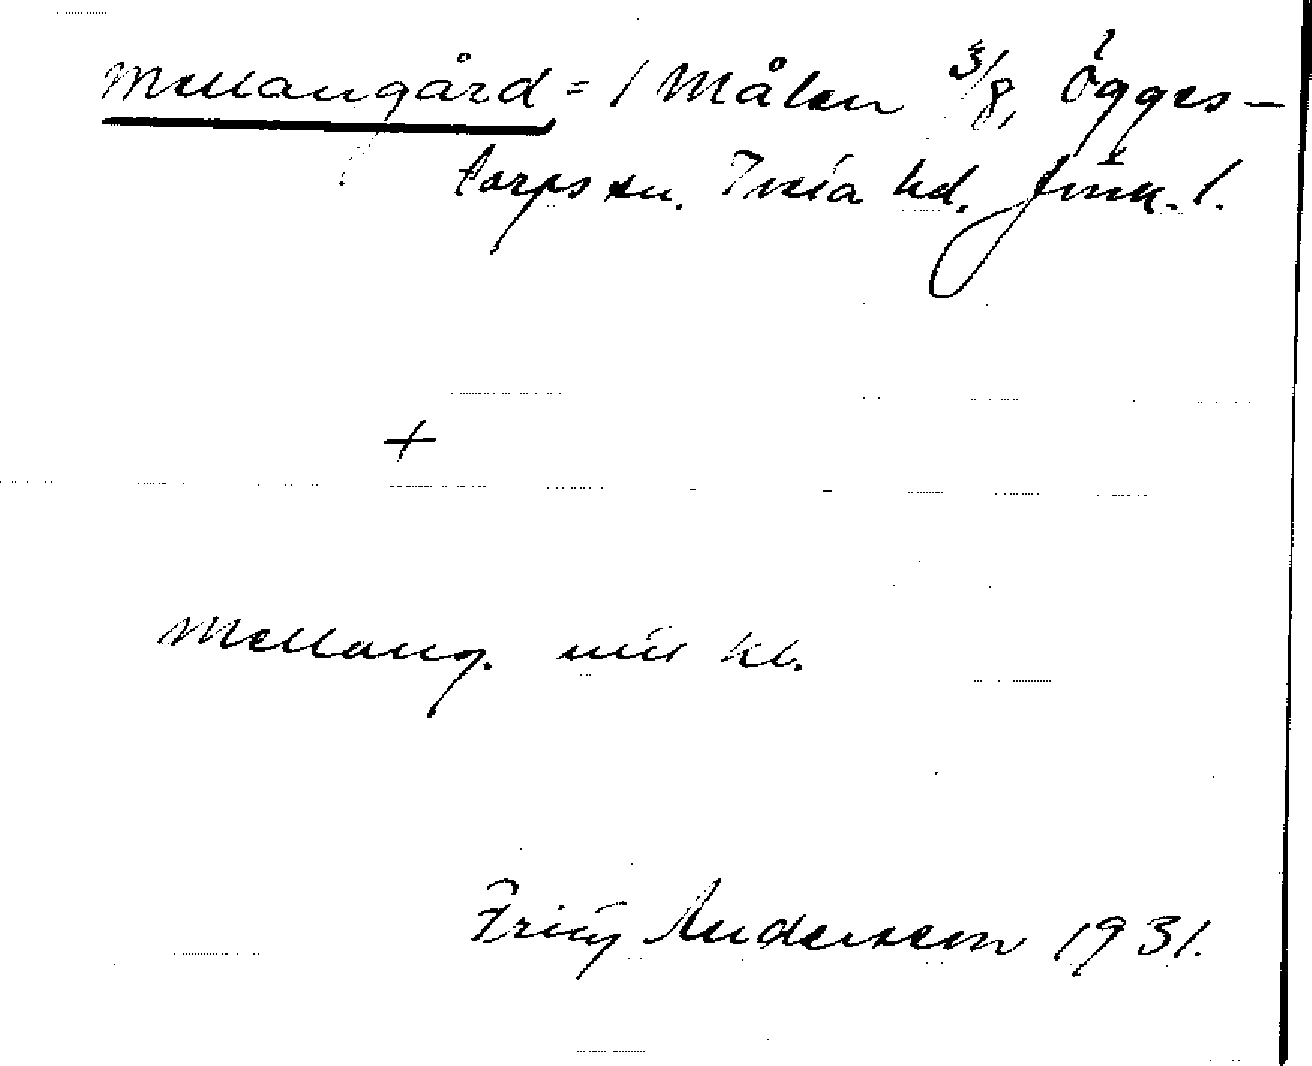 Mellangård = 1 Målen 3/8, Ögges-
torps sn. Tveta hd. Jönk. l.
+
Mellang. kl.
Andersson 1931.